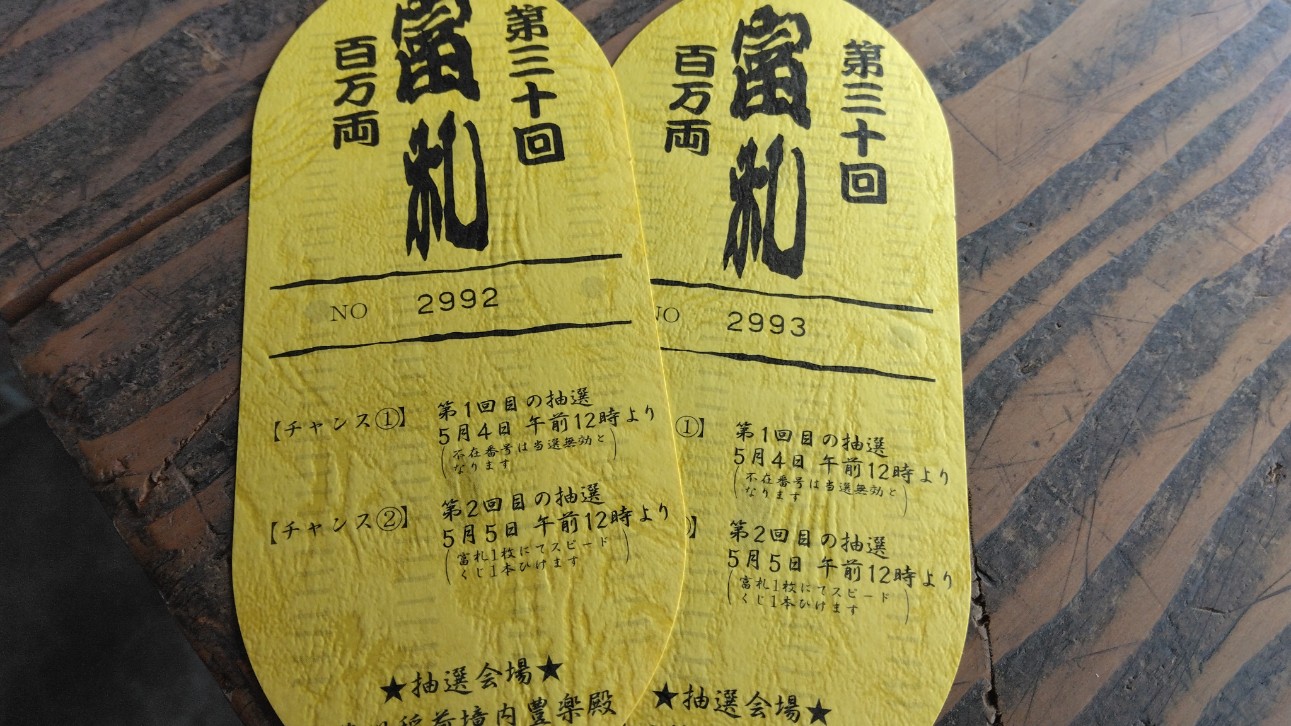 第三十回
富札
百万両
NO 2992
【チャンス①】
第1回目の抽選
5月4日 午前12時より
(不在番号は当選無効と
なります)
【チャンス②】
第2回目の抽選
5月5日 午前12時より
(富札1枚にてスピード
くじ1本ひけます)
★抽選会場★
稲荷境内豊楽殿
第三十回
富札
百万両
NO 2993
①】
第1回目の抽選
5月4日 午前12時より
(不在番号は当選無効と
なります)
】
第2回目の抽選
5月5日 午前12時より
(富札1枚にてスピード
くじ1本ひけます)
★抽選会場★